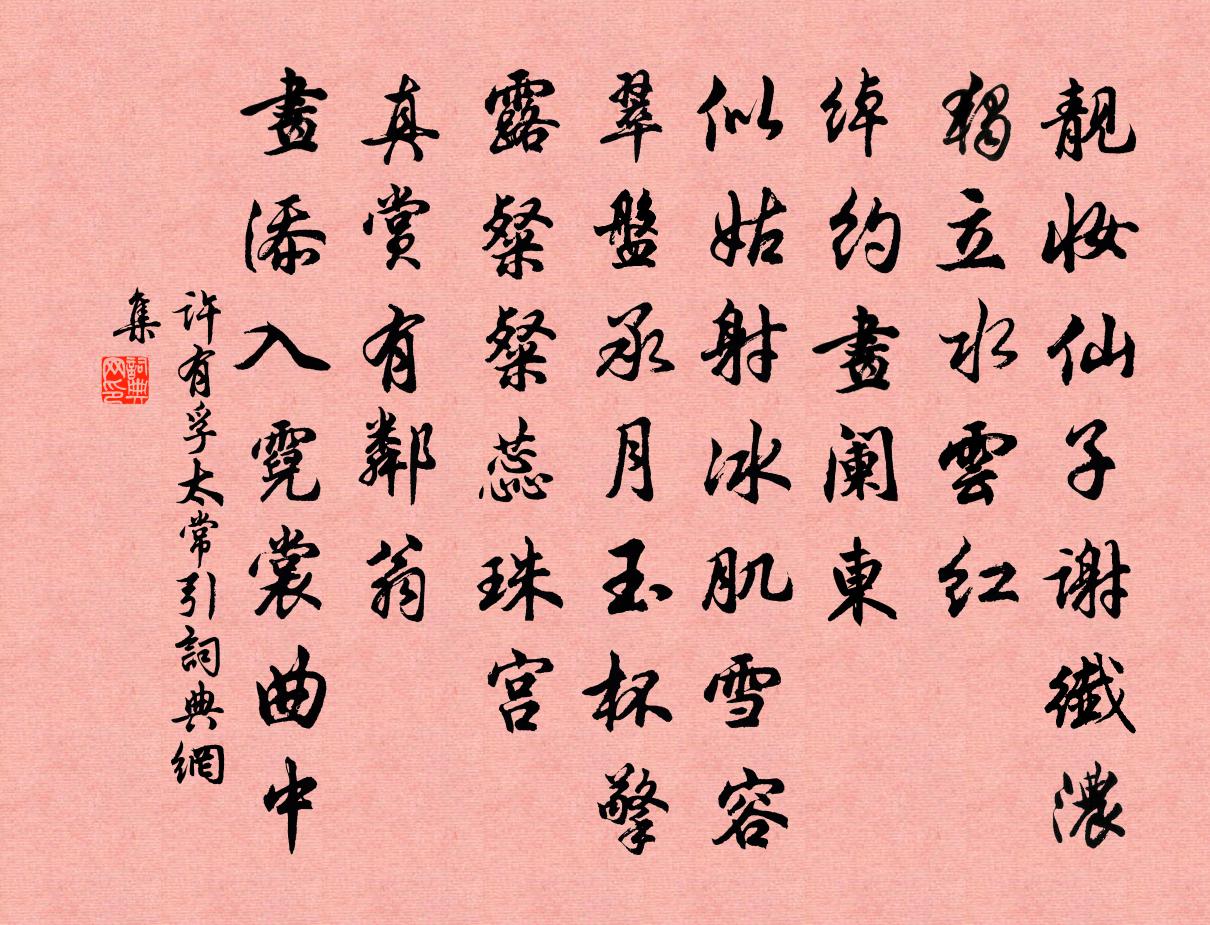 靚妝仙子謝纖濃
獨立水雲紅
綽約畫闌東
似姑射冰肌雪容
翠盤承月玉杯擎
露粲粲蕊珠宮
真賞有鄰翁
畫添入霓裳曲中
許有孚太常引詞典網
集
詞典網印